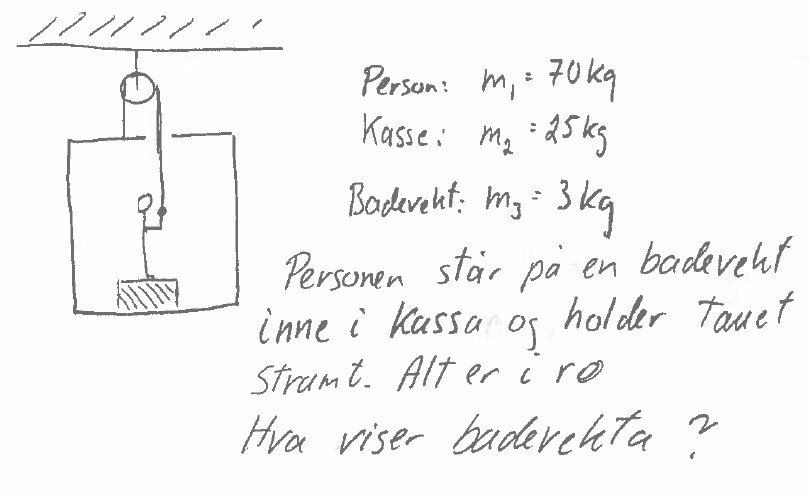 Person: m₁ = 70 kg
Kasse: m₂ = 25 kg
Badevekt: m₃ = 3 kg
Personen står på en badevekt
inne i kassa og holder tauet
stramt. Alt er i ro
Hva viser badevekta?